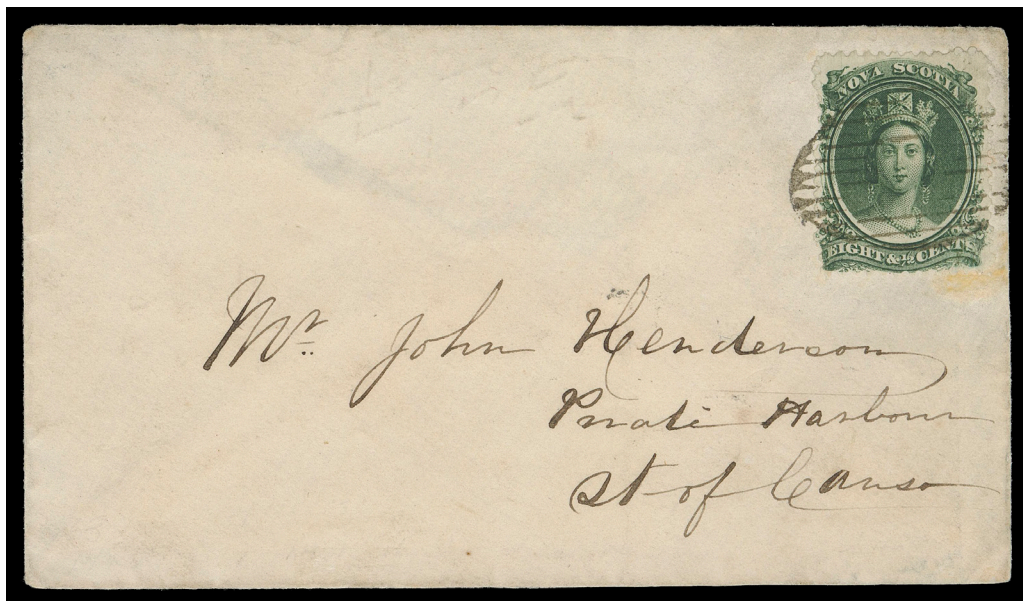 NOVA SCOTIA
EIGHT & ½ CENTS
Mr. John Henderson
Pirate Harbour
St of Canso